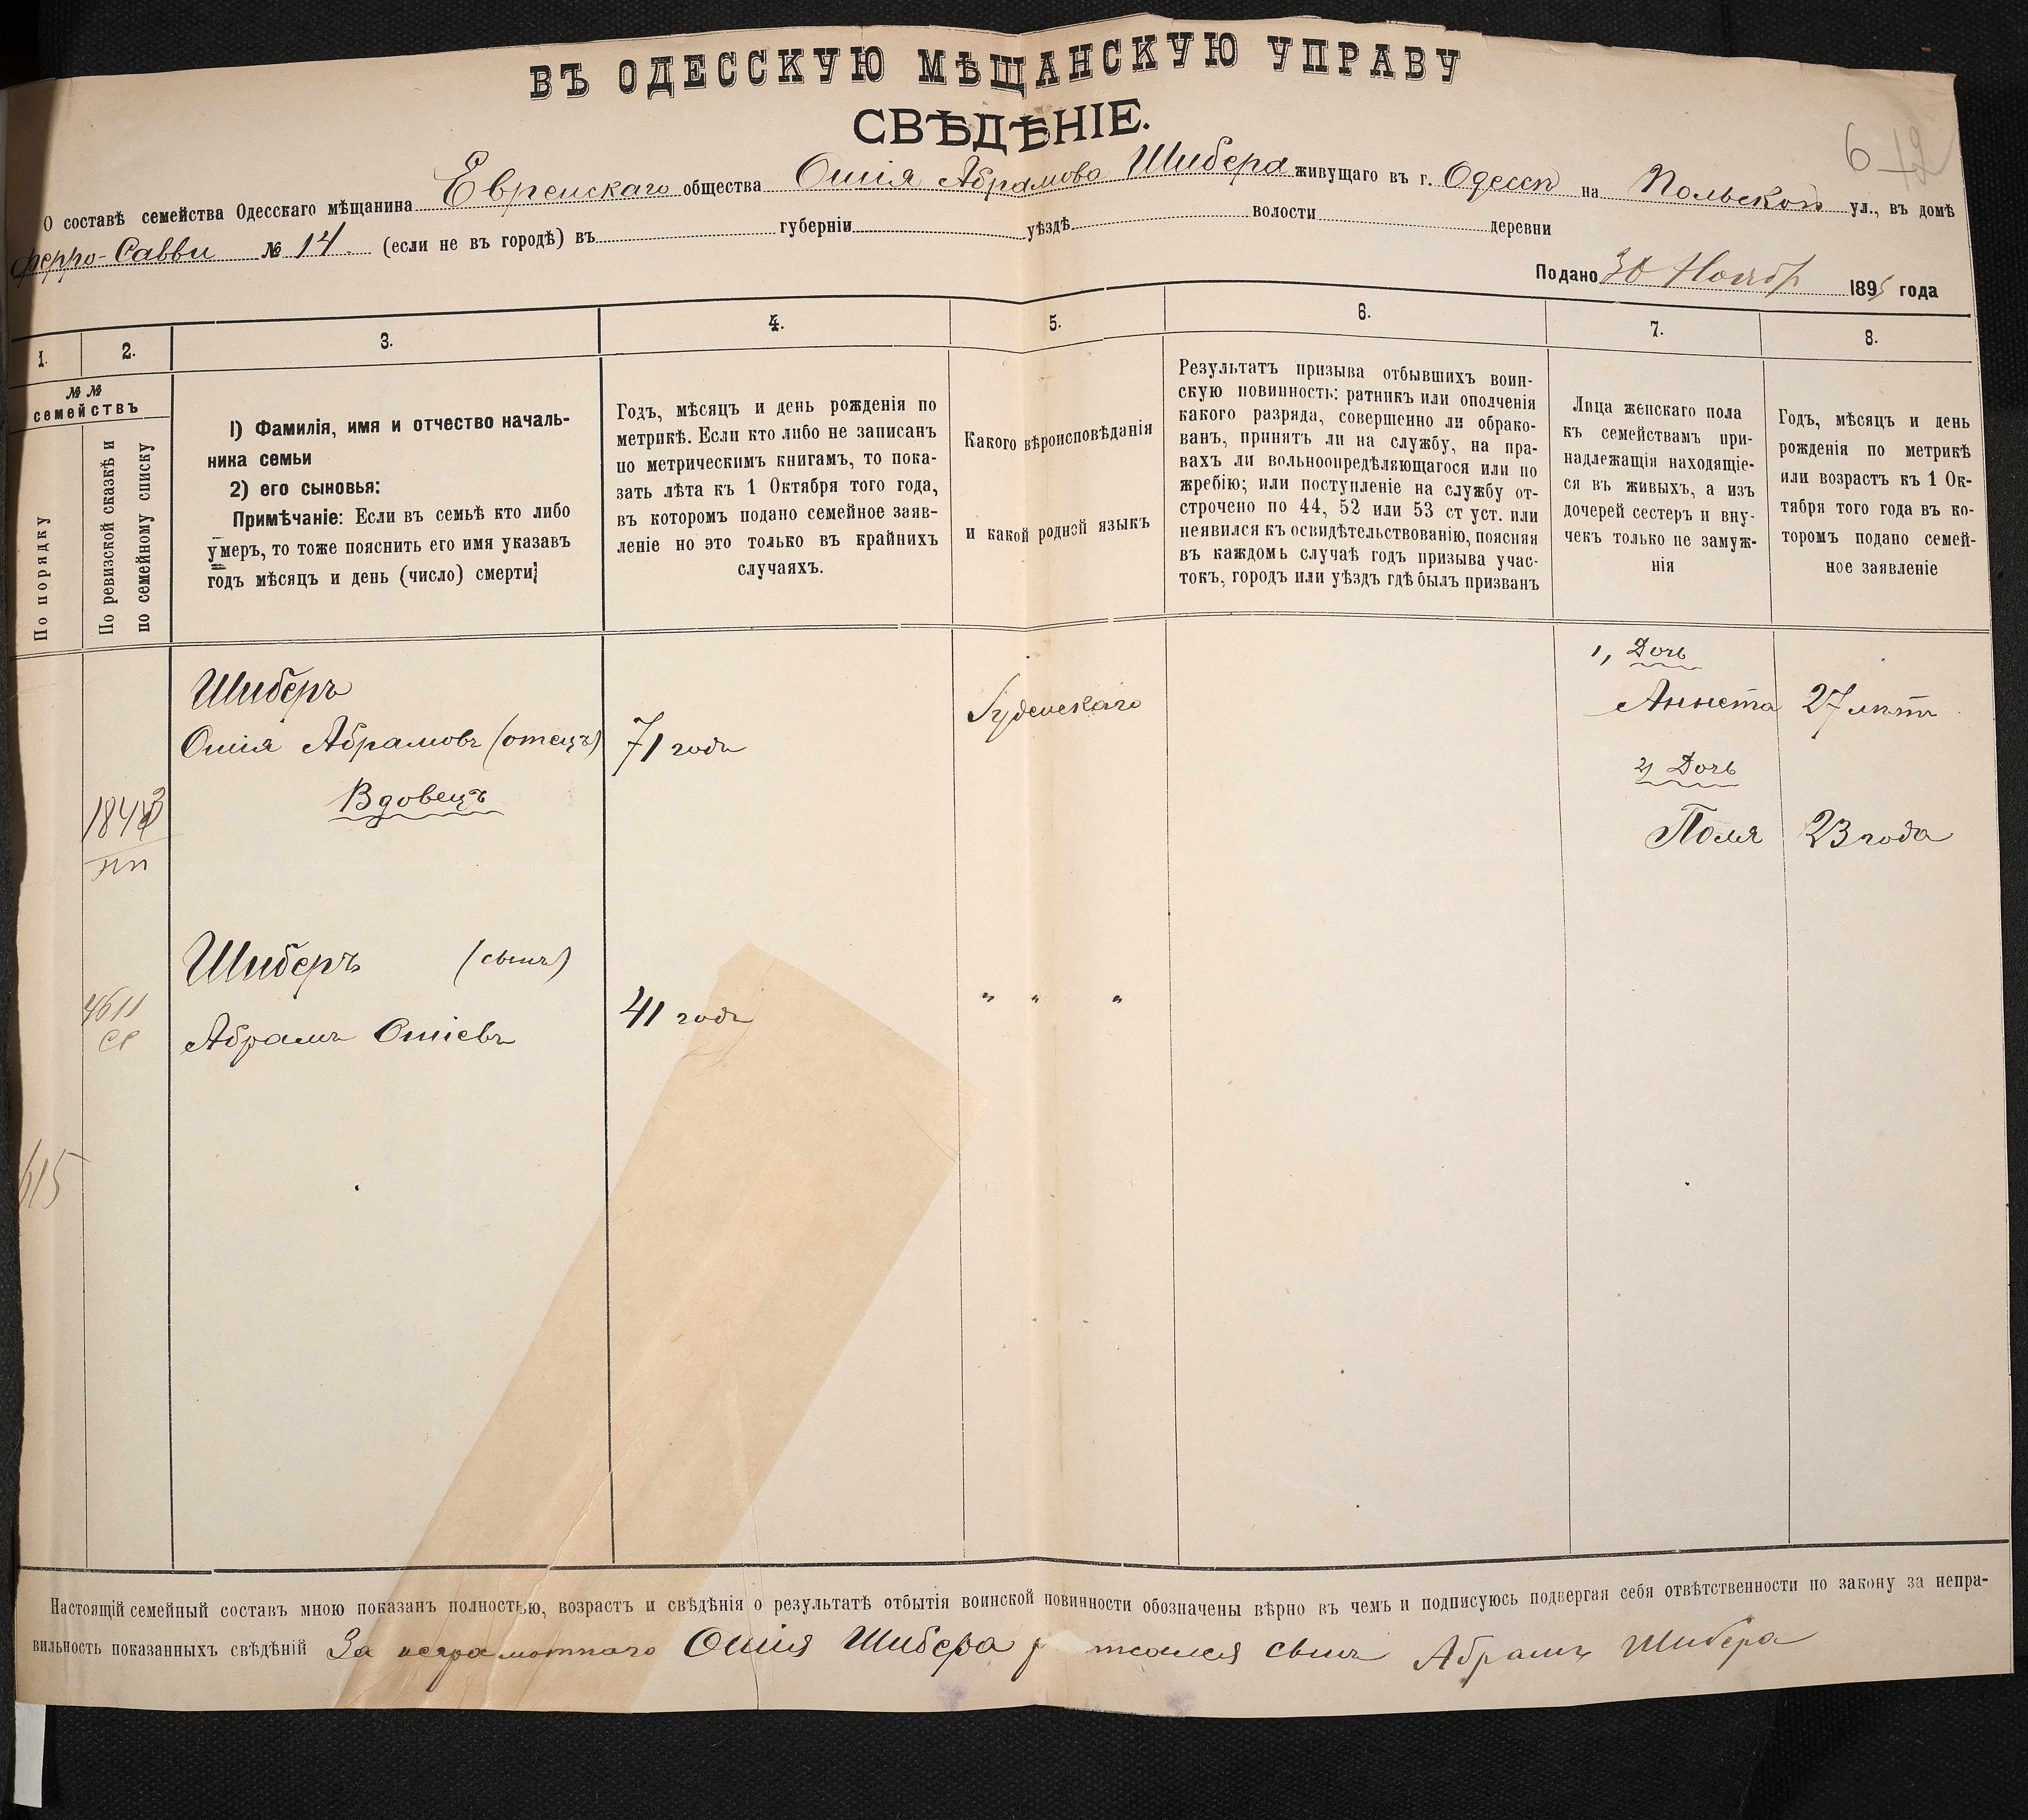 ВЪ ОДЕССКУЮ МѢЩАНСКУЮ УПРАВУ
СВѢДѢНІЕ.
6 12
О составѣ семейства Одесскаго мѣщанина Еврейскаго общества Ошія Абрамова Шибера живущаго въ г. Одессѣ на Польской ул., въ домѣ
Ферро-Савви № 14. (если не въ городѣ) въ губерніи уѣздѣ волости деревни
Подано 30 Ноябр 1895 года
1. 2. 3. 4. 5. 6. 7. 8.
№ №
семействъ
По порядку
По ревизской сказкѣ и
по семейному списку
1) Фамилія, имя и отчество началь-
ника семьи
2) его сыновья:
Примѣчаніе: Если въ семьѣ кто либо
умеръ, то тоже пояснить его имя указавъ
годъ мѣсяцъ и день (число) смерти;
Годъ, мѣсяцъ и день рожденія по
метрикѣ. Если кто либо не записанъ
по метрическимъ книгамъ, то пока-
зать лѣта къ 1 Октября того года,
въ которомъ подано семейное заяв-
леніе но это только въ крайнихъ
случаяхъ.
Какого вѣроисповѣданія
и какой родной языкъ
Результатъ призыва отбывшихъ воин-
скую повинность: ратникъ или ополченія
какого разряда, совершенно ли обрако-
ванъ, принятъ ли на службу, на пра-
вахъ ли вольноопредѣляющагося или по
жребію; или поступленіе на службу от-
строчено по 44, 52 или 53 ст уст. или
неявился къ освидѣтельствованію, поясняя
въ каждомъ случаѣ годъ призыва учас-
токъ, городъ или уѣздъ гдѣ былъ призванъ
Лица женскаго пола
къ семействамъ при-
надлежащія находящіе-
ся въ живыхъ, а изъ
дочерей сестеръ и вну-
чекъ только не замуж-
нія
Годъ, мѣсяцъ и день
рожденія по метрикѣ
или возрастъ къ 1 Ок-
тября того года въ ко-
торомъ подано семей-
ное заявленіе
Шиберъ
Ошія Абрамовъ (отецъ) 71 годъ
Вдовецъ
Іудейскаго
1, Дочь
Аннета 27 лѣтъ
2, Дочь
Поля 23 года
Шиберъ (сынъ)
4611
Абрамъ Ошіевъ 41 годъ
" " "
615
Настоящій семейный составъ мною показанъ полностью, возрастъ и свѣдѣнія о результатѣ отбытія воинской повинности обозначены вѣрно въ чемъ и подписуюсь подвергая себя отвѣтственности по закону за непра-
вильность показанныхъ свѣдѣній За неграмотнаго Ошія Шибера сынъ Абрамъ Шибера